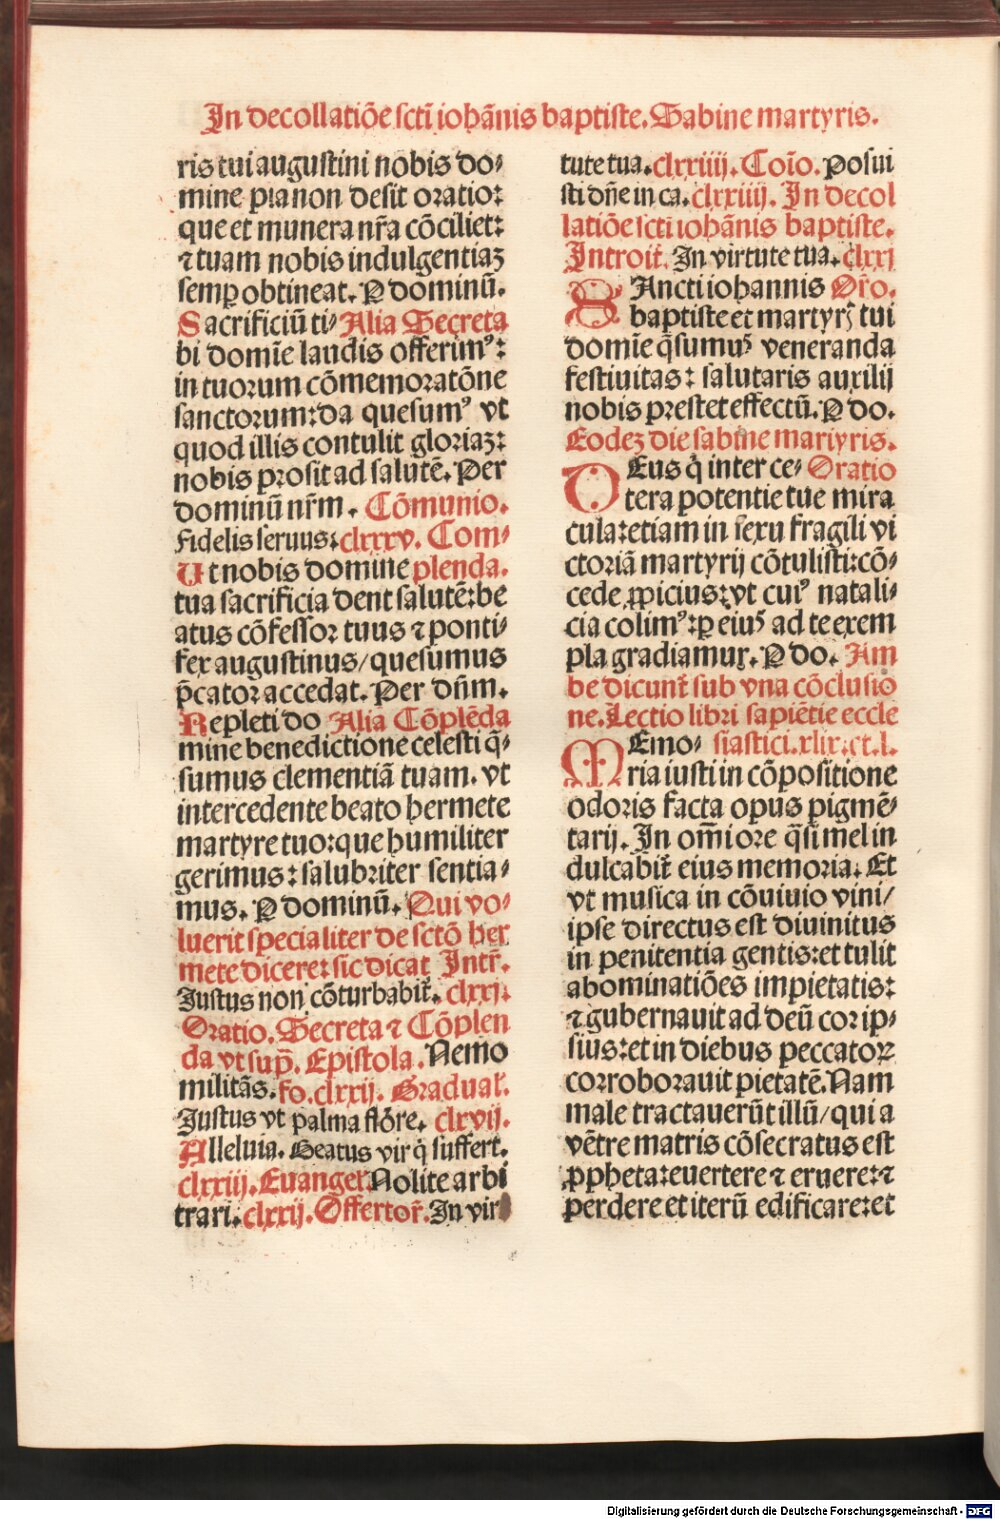 In decollatiōe scti iohānis baptiste. Sabine martyris.
ris tui augustini nobis do⸗
mine pia non desit oratio:
que et munera nr̄a cōciliet:
⁊ tuam nobis indulgentiaꝫ
semꝑ obtineat. P dominū.
Sacrificiū ti⸗ Alia Secreta
bi domīe laudis offerimꝰ:
in tuorum cōmemoratōne
sanctorum: da quesumꝰ vt
quod illis contulit gloriaꝫ:
nobis prosit ad salutē. Per
dominū nr̄m. Cōmunio.
Fidelis seruus: clxxxv. Com⸗
Ut nobis domine plenda.
tua sacrificia dent salutē: be
atus cōfessor tuus ⁊ ponti⸗
fex augustinus/ quesumus
p̄cator accedat. Per dn̄m.
Repleti do Alia Cōplēda
mine benedictione celesti q̄⸗
sumus clementiā tuam. vt
intercedente beato hermete
martyre tuo: que humiliter
gerimus: salubriter sentia⸗
mus. P dominū. Qui vo⸗
luerit specialiter de sctō her
mete dicere: sic dicat Intr̄.
Justus non cōturbabit̄. clxxj.
Oratio. Secreta ⁊ Cōplen
da vt sup̄. Epistola. Nemo
militās. fo. clxxij. Gradual̄.
Justus vt palma flōre. clxvij.
Alleluia. Beatus vir q̇ suffert.
clxxiij. Euangel̄. Nolite arbi
trari. clxxij. Offertor̄. In vir
tute tua. clxxiiij. Coīo. Posui
sti dn̄e in ca. clxxiiij. In decol
latiōe scti iohānis baptiste.
Introit̄. In virtute tua. clxxj
SAncti iohannis Or̄o.
baptiste et martyrꝭ tui
domīe q̄sumꝰ veneranda
festiuitas: salutaris auxilij
nobis prestet effectū. P do.
Eodeꝫ die sabine martyris.
DEus q̇ inter ce⸗ Oratio
tera potentie tue mira
cula: etiam in sexu fragili vi
ctoriā martyrij cōtulisti: cō⸗
cede ꝓpicius: vt cuiꝰ natali⸗
cia colimꝰ: ꝑ eiuꝰ ad te exem
pla gradiamur. P do. Am
be dicunt̄ sub vna cōclusio
ne. Lectio libri sapiētie eccle
MEmo⸗ siastici. xlix. et. l.
ria iusti in cōpositione
odoris facta opus pigmē⸗
tarij. In om̄i ore q̄si mel in
dulcabit̄ eius memoria. Et
vt musica in cōuiuio vini/
ipse directus est diuinitus
in penitentia gentis: et tulit
abominatiōes impietatis:
⁊ gubernauit ad deū cor ip⸗
sius: et in diebus peccatoꝝ
corroborauit pietatē. Nam
male tractauerūt illū/ qui a
vētre matris cōsecratus est
ꝓpheta: euertere ⁊ eruere: ⁊
perdere et iterū edificare: et
Digitalisierung gefördert durch die Deutsche Forschungsgemeinschaft - DFG